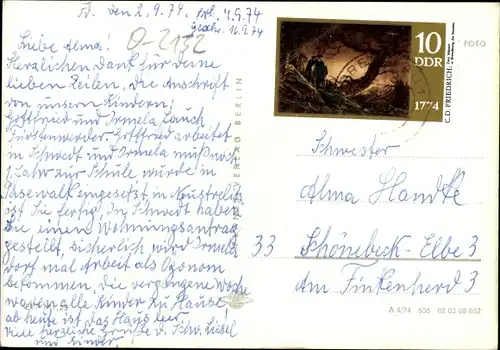 Fü. den 2.9.74.
erh. 4.9.74
Geschr. 16.9.74
O-2132
Liebe Alma!
Herzlichen Dank für deine
lieben Zeilen, die Anschrift
von unseren Kindern,
Gottfried und Irmela, auch
Fürstenwerder. Gottfried arbeitet
in Schwedt und Irmela muß noch
1 Jahr zur Schule, wurde in
Pasewalk eingesetzt, in Neustrelitz
ist sie fertig. In Schwedt haben
sie einen Wohnungsantrag
gestellt, sicherlich wird Irmela
dort mal Arbeit als Ökonom
bekommen. Die vergangene Woche
waren alle Kinder zu Hause
ab heute ist das Haus leer.
Viele herzliche Grüße d. Schw. Liesel
und Kinder.
10
DDR
C.D. FRIEDRICH:
1774
FOTO
BERLIN
Schwester
Alma Handke
33 Schönebeck-Elbe 3
Am Finkenherd 3
A 4/74 606 02 03 08 032